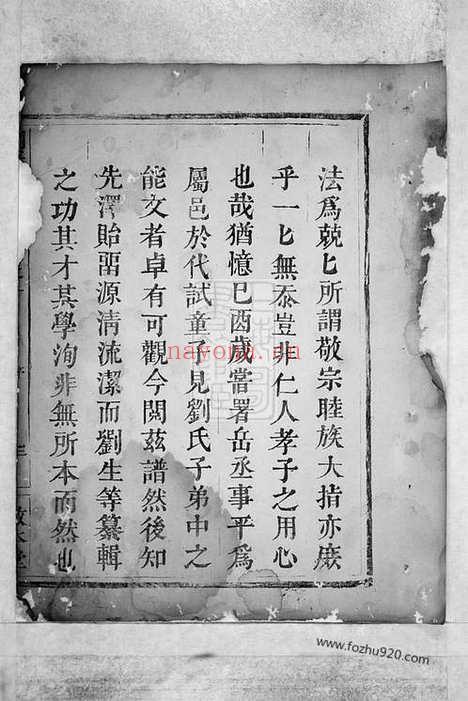 法為兢匕所謂敬宗睦族大指亦庶
乎一匕無忝豈非仁人孝子之用心
也哉猶憶巳酉歲嘗署岳丞事平為
屬邑於代試童子見劉氏子弟中之
能文者卓有可觀今閱兹譜然後知
先澤貽畱源清流潔而劉生等纂輯
之功其才其學洵非無所本而然也
nayona.cn
www.fozhu920.com